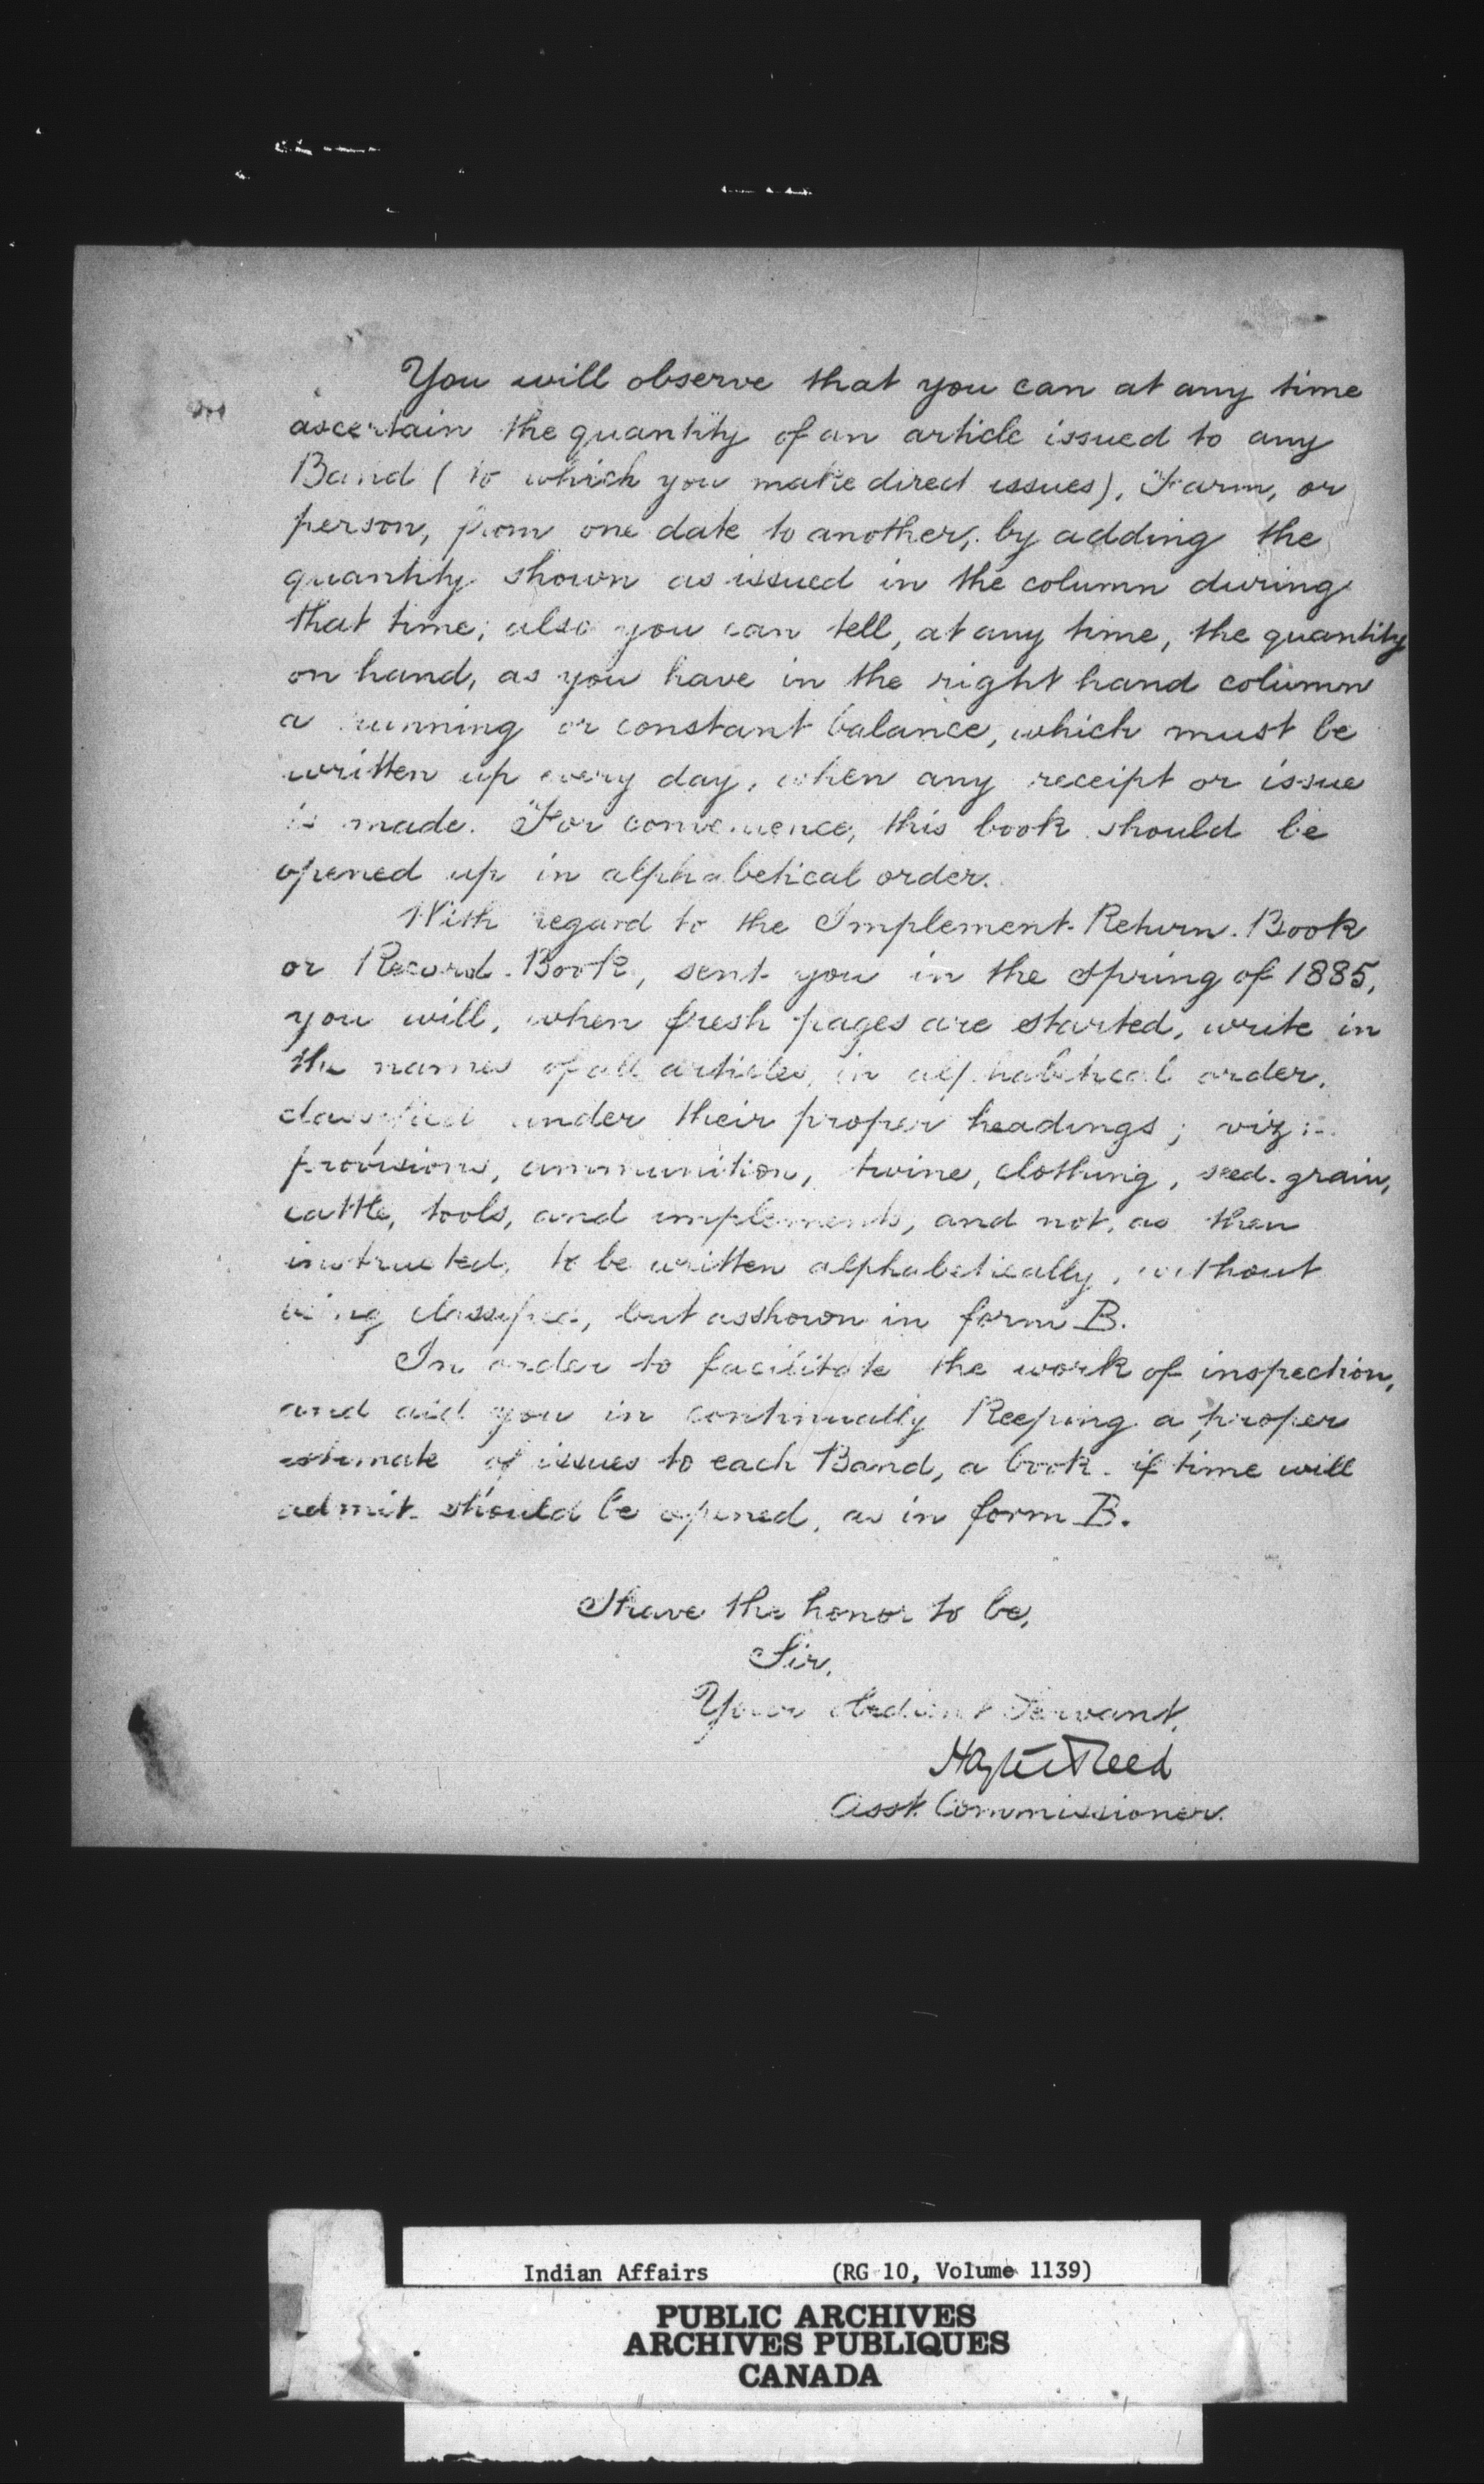 You will observe that you can at any time
ascertain the quantity of an article issued to any
Band (to which you make direct issues), Farm, or
person, from one date to another, by adding the
quantity shown as issued in the column during
that time; also you can tell, at any time, the quantity
on hand, as you have in the right hand column
a running or constant balance, which must be
written up every day, when any receipt or issue
is made. For convenience, this book should be
opened up in alphabetical order.
With regard to the Implement-Return-Book
or Record-Book, sent you in the Spring of 1885,
you will, when fresh pages are started, write in
the names of all articles, in alphabetical order,
classified under their proper headings; viz:-
provisions, ammunition, twine, clothing, seed-grain,
cattle, tools, and implements, and not, as then
instructed, to be written alphabetically, without
being classified, but as shown in form B.
In order to facilitate the work of inspection,
and aid you in continually keeping a proper
estimate of issues to each Band, a book - if time will
admit - should be opened, as in form B.
I have the honor to be,
Sir,
Your obedient Servant,
Hayter Reed
Asst. Commissioner.
Indian Affairs (RG 10, Volume 1139)
PUBLIC ARCHIVES
ARCHIVES PUBLIQUES
CANADA